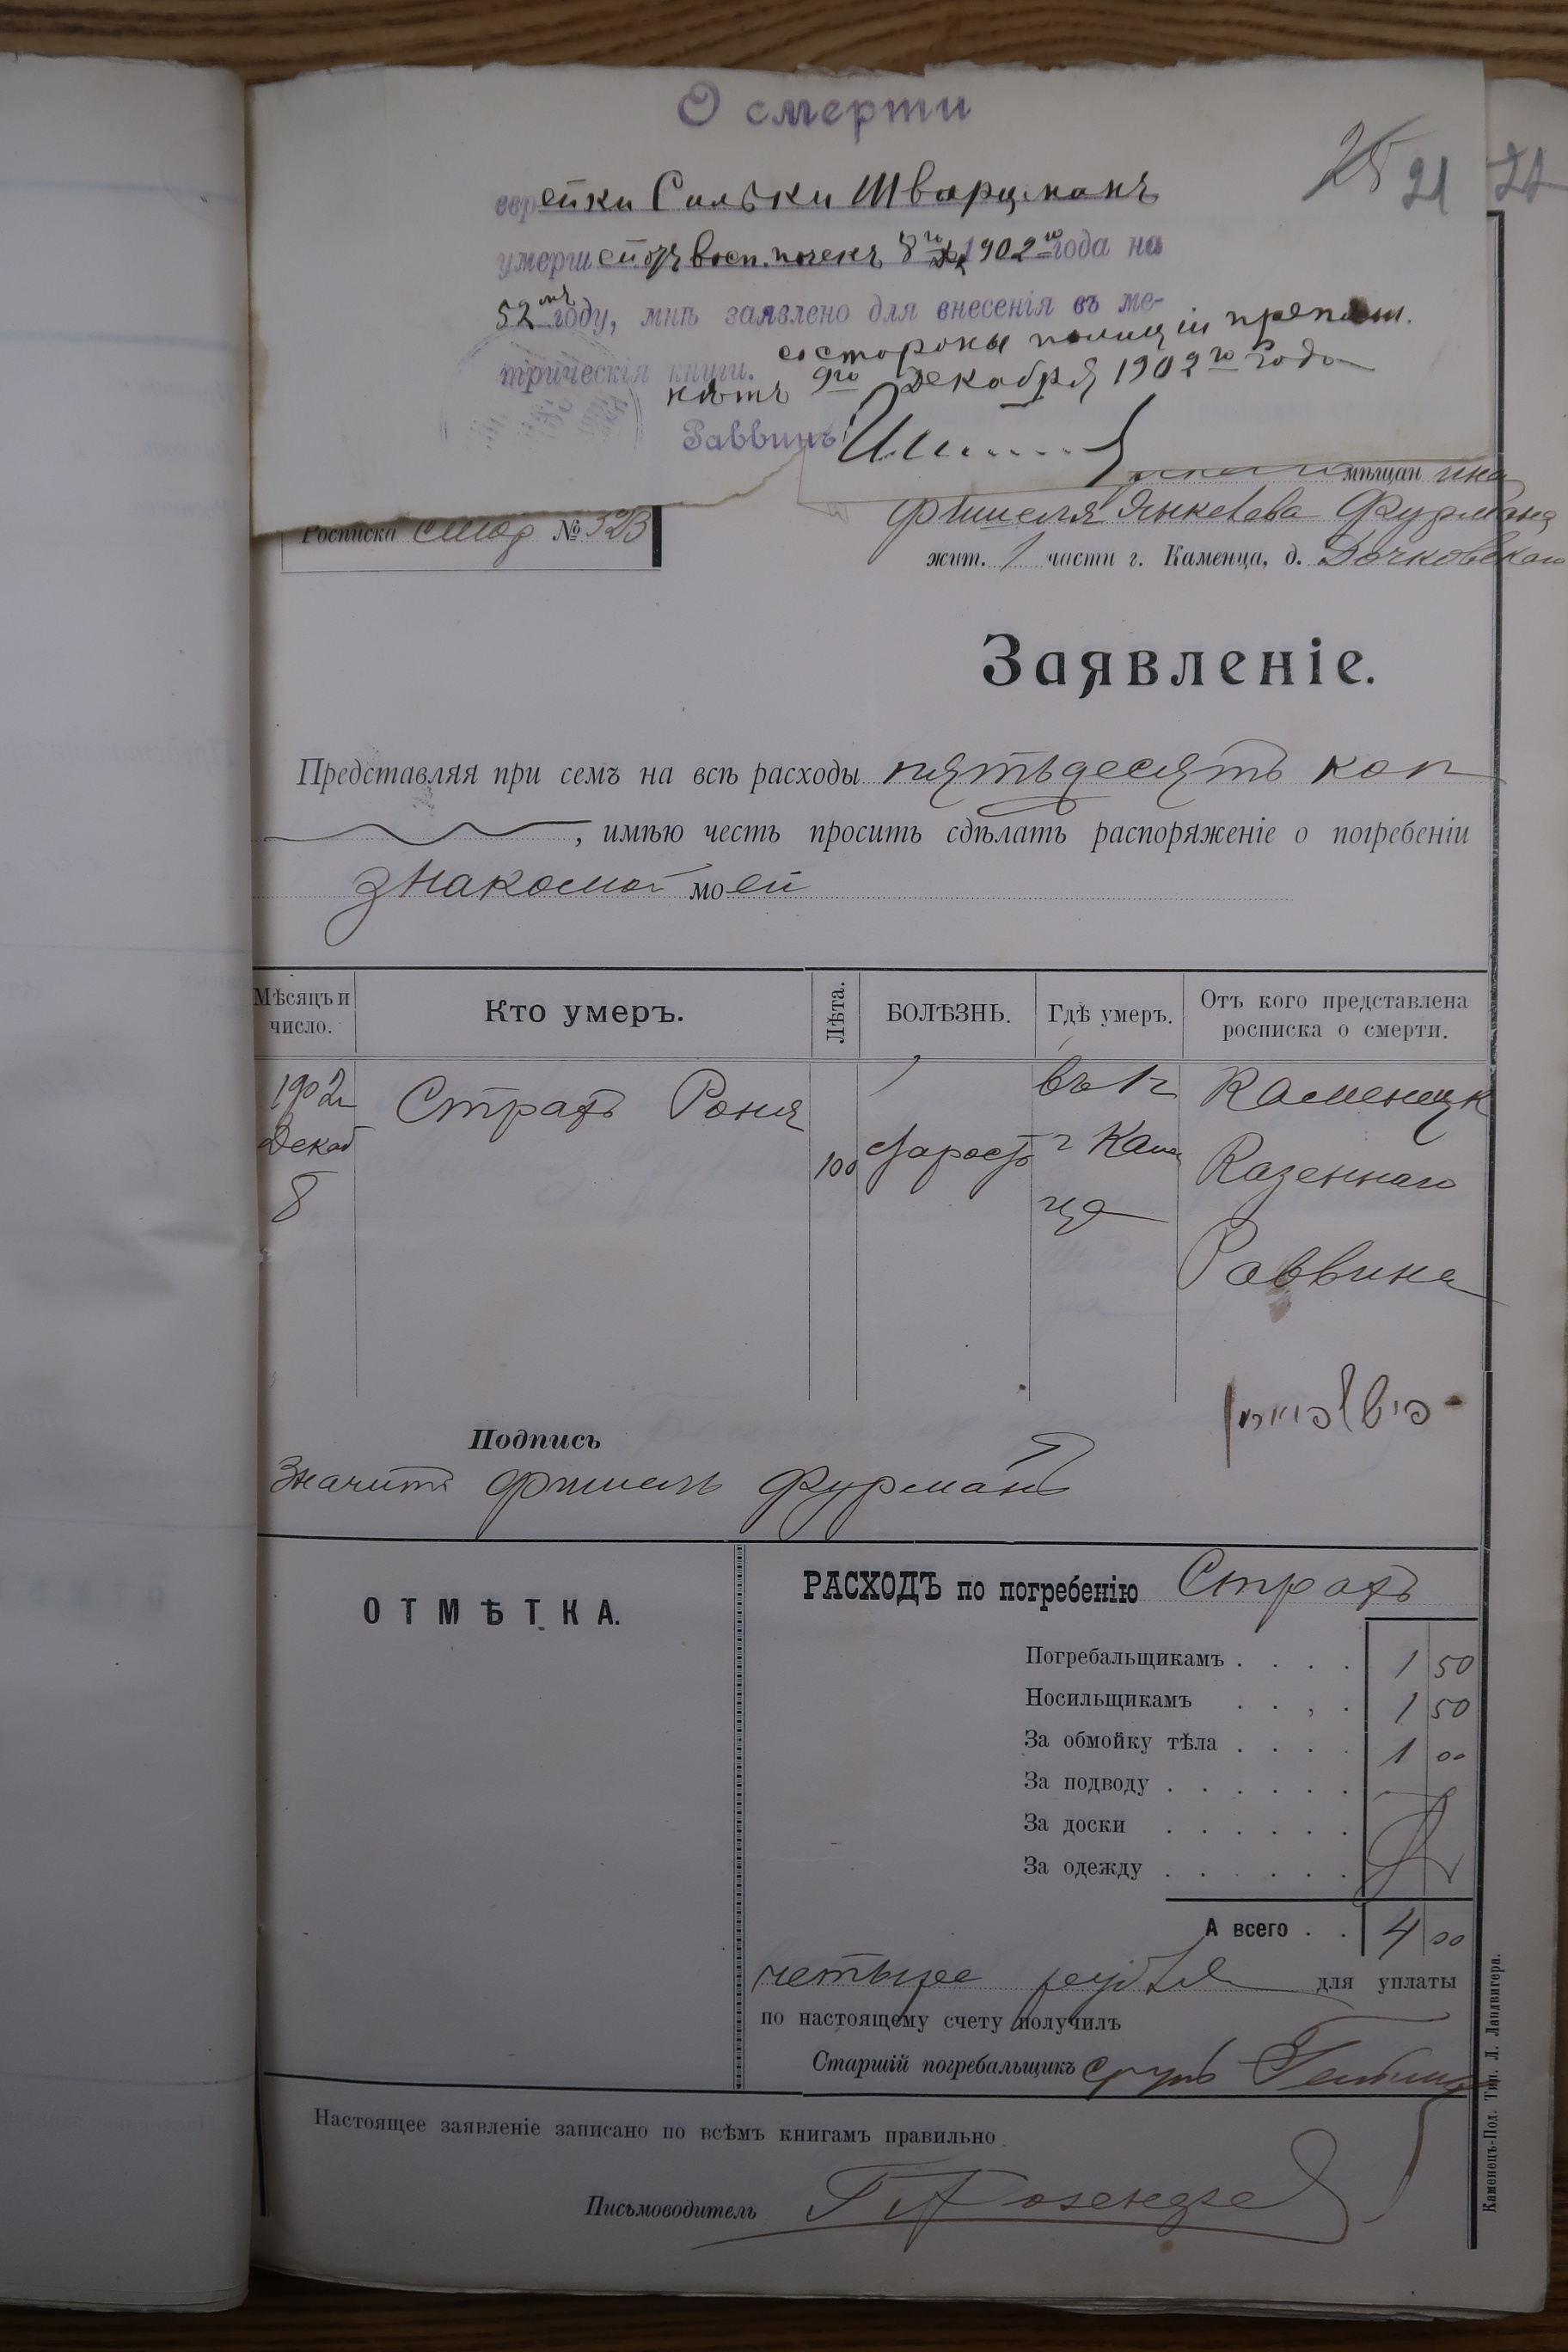 О смерти
25 21 22
еврейки Сильки Шварцманъ
умершей отъ восп. почекъ 8го 1902го года на
52мъ году, мнѣ заявлено для внесенія въ ме-
трическія книги. со стороны полиціи препят.
нѣтъ 9го Декабря 1902го года
Раввинъ
мѣщанина
Росписка № 323
Фишеля Янкелева Фурмана
жит. 1 части г. Каменца, д. Дочковскаго
Заявленіе.
Представляя при семъ на всѣ расходы пятьдесятъ коп
, имѣю честь просить сдѣлать распоряженіе о погребеніи
знакомой моей
Мѣсяцъ и число. Кто умеръ. Лѣта. БОЛѢЗНЬ. Гдѣ умеръ. Отъ кого представлена росписка о смерти.
1902г Страхъ Роня въ 1ч Каменецк
Декаб 100 старость г Каме Казеннаго
8 нца Раввина
פישל פורמן
Подпись
Значитъ Фишель Фурманъ
ОТМѢТКА.
РАСХОДЪ по погребенію Страхъ
Погребальщикамъ . . . . 1 50
Носильщикамъ . . , . 1 50
За обмойку тѣла . . . . 1 00
За подводу . . . . . .
За доски . . . . . .
За одежду . . . . . .
А всего . . 4 00
четыре рубля для уплаты
по настоящему счету получилъ
Старшій погребальщикъ Сруль
Настоящее заявленіе записано по всѣмъ книгамъ правильно
Письмоводитель
Каменецъ-Под. Тип. Л. Ландвигера.